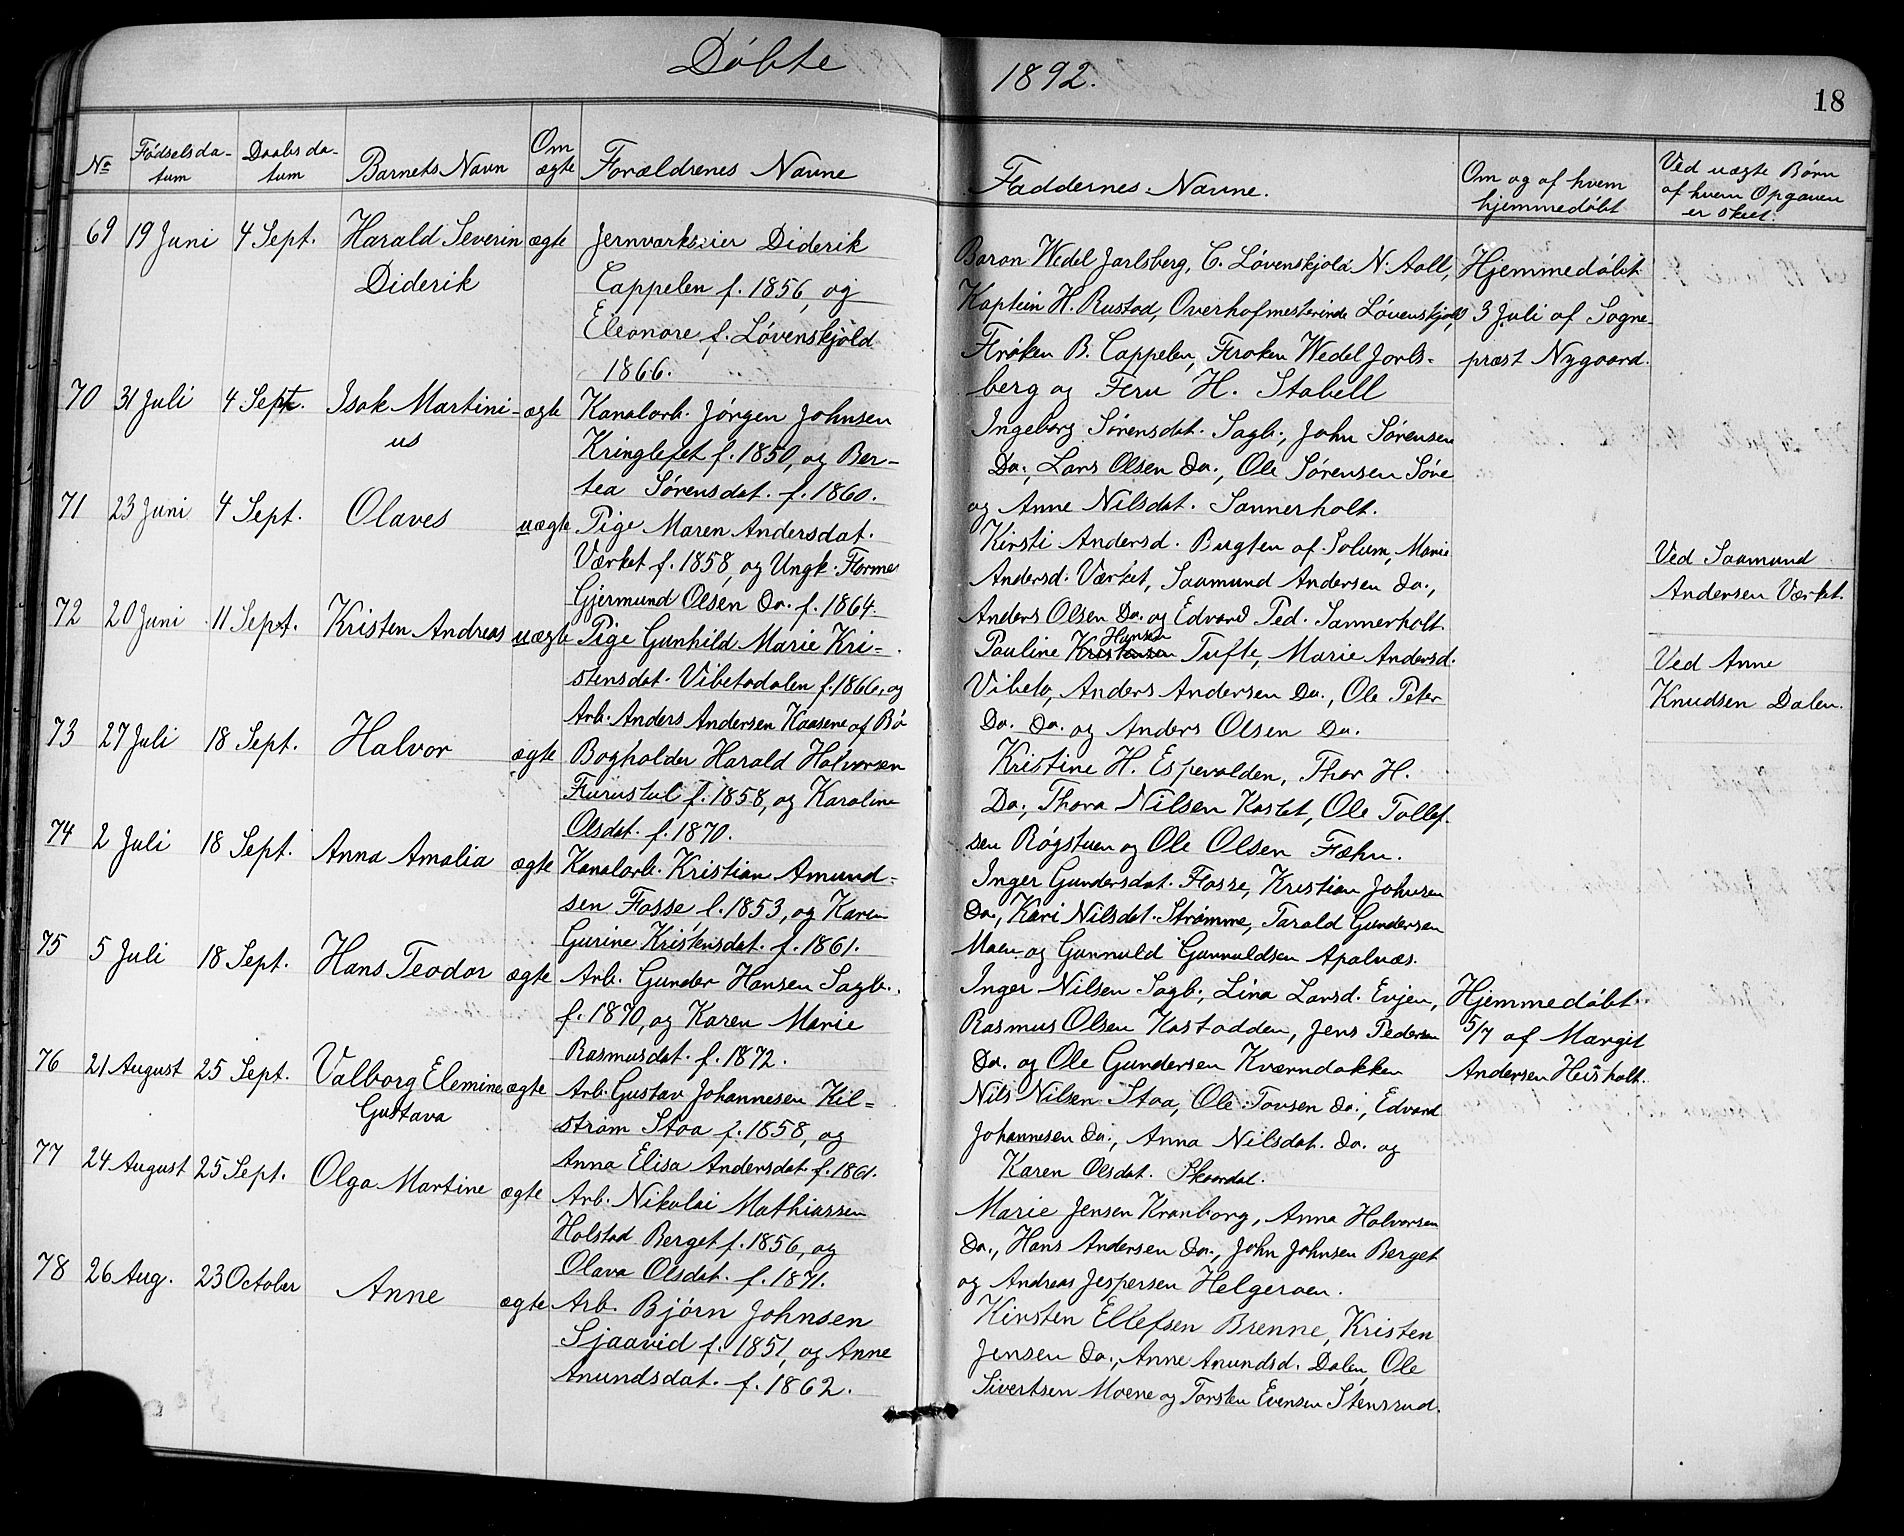 Døbte 1892.
18
No Fødselsdatum Daabsdatum Barnets Navn Om ægte Forældrenes Navne Faddernes Navne. Om og af hvem hjemmedøbt Ved uægte Børn af hvem Opgaven er skeet.
69 19 Juni 4 Sept. Harald Severin ægte Jernværkseier Diderik
Diderik Cappelen f. 1856, og
Eleonore f. Løvenskjold
1866.
Baron Wedel Jarlsberg, C. Løvenskjold N. Aall, Hjemmedøbt
Kaptein H. Rustad, Overhofmesterinde Løvenskjold, 3 Juli af Sogne-
Frøken B. Cappelen, Frøken Wedel Jarls- præst Nygaard.
berg og Fru H. Stabell
70 31 Juli 4 Sept. Isak Martini- ægte Kanalarb. Jørgen Johnsen
us Kringlefet f. 1850, og Ber-
tea Sørensdat. f. 1860.
Ingeborg Sørensdat. Sagb., John Sørensen
Do., Lars Olsen Do., Ole Sørensen Søve
og Anne Nilsdat. Sannerholt.
71 23 Juni 4 Sept. Olaves uægte Pige Maren Andersdat.
Værket f. 1858, og Ungk. Former
Gjermund Olsen Do. f. 1864.
Kirsti Andersd. Bugten af Solum, Marie
Andersd. Værket, Saamund Andersen Do.,
Anders Olsen Do. og Edvard Ped. Sannerholt.
Ved Saamund
Andersen Værket.
72 20 Juni 11 Sept. Kristen Andreas uægte Pige Gunhild Marie Kri-
stensdat. Vibetodalen f. 1866, og
Arb. Anders Andersen Kaasene af Bø
Pauline Kristensen Hansen Tufte, Marie Andersd.
Vibeto, Anders Andersen Do., Ole Peter
Do. Do. og Anders Olsen Do.
Ved Anne
Knudsen Dalen.
73 27 Juli 18 Sept. Halvor ægte Bogholder Harald Halvorsen
Furustul f. 1858, og Karoline
Olsdat. f. 1870.
Kristine H. Espevalden, Thor H.
Do., Thora Nilsen Kastet, Ole Tollef-
sen Røgstuen og Ole Olsen Fæhn.
74 2 Juli 18 Sept. Anna Amalia ægte Kanalarb. Kristian Amund-
sen Fosse f. 1853, og Karen
Gurine Kristensdat. f. 1861.
Inger Gundersdat. Fosse, Kristian Johnsen
Do., Kari Nilsdat. Strømme, Tarald Gundersen
Moen og Gunnuld Gunnuldsen Apalnæs.
75 5 Juli 18 Sept. Hans Teodor ægte Arb. Gunder Hansen Sagb.,
f. 1870, og Karen Marie
Rasmusdat. f. 1872.
Inger Nilsen Sagb., Lina Larsd. Evjen, Hjemmedøbt
Rasmus Olsen Kastodden, Jens Pedersen 5/7 af Margit
Do. og Ole Gundersen Kværndokken Andersen Heisholt.
76 21 August 25 Sept. Valborg Elemine ægte Arb. Gustav Johannesen Kil-
Gustava strøm Stoa f. 1858, og
Anna Elisa Andersdat. f. 1861.
Nils Nilsen Stoa, Ole Tovsen Do., Edvard
Johannesen Do., Anna Nilsdat. Do. og
Karen Olsdat. Skaardal.
77 24 August 25 Sept. Olga Martine ægte Arb. Nikolai Mathiassen
Holstad Berget f. 1856, og
Olava Olsdat. f. 1871.
Marie Jensen Kranborg, Anna Halvorsen
Do., Hans Andersen Do., John Johnsen Berget
og Andreas Jespersen Helgeroen.
78 26 Aug. 23 October Anne ægte Arb. Bjørn Johnsen
Sjaavid f. 1851, og Anne
Anundsdat. f. 1862.
Kirsten Ellefsen Brenne, Kristen
Jensen Do., Anne Anundsd. Dalen, Ole
Sivertsen Moene og Torsten Evensen Stensrud.